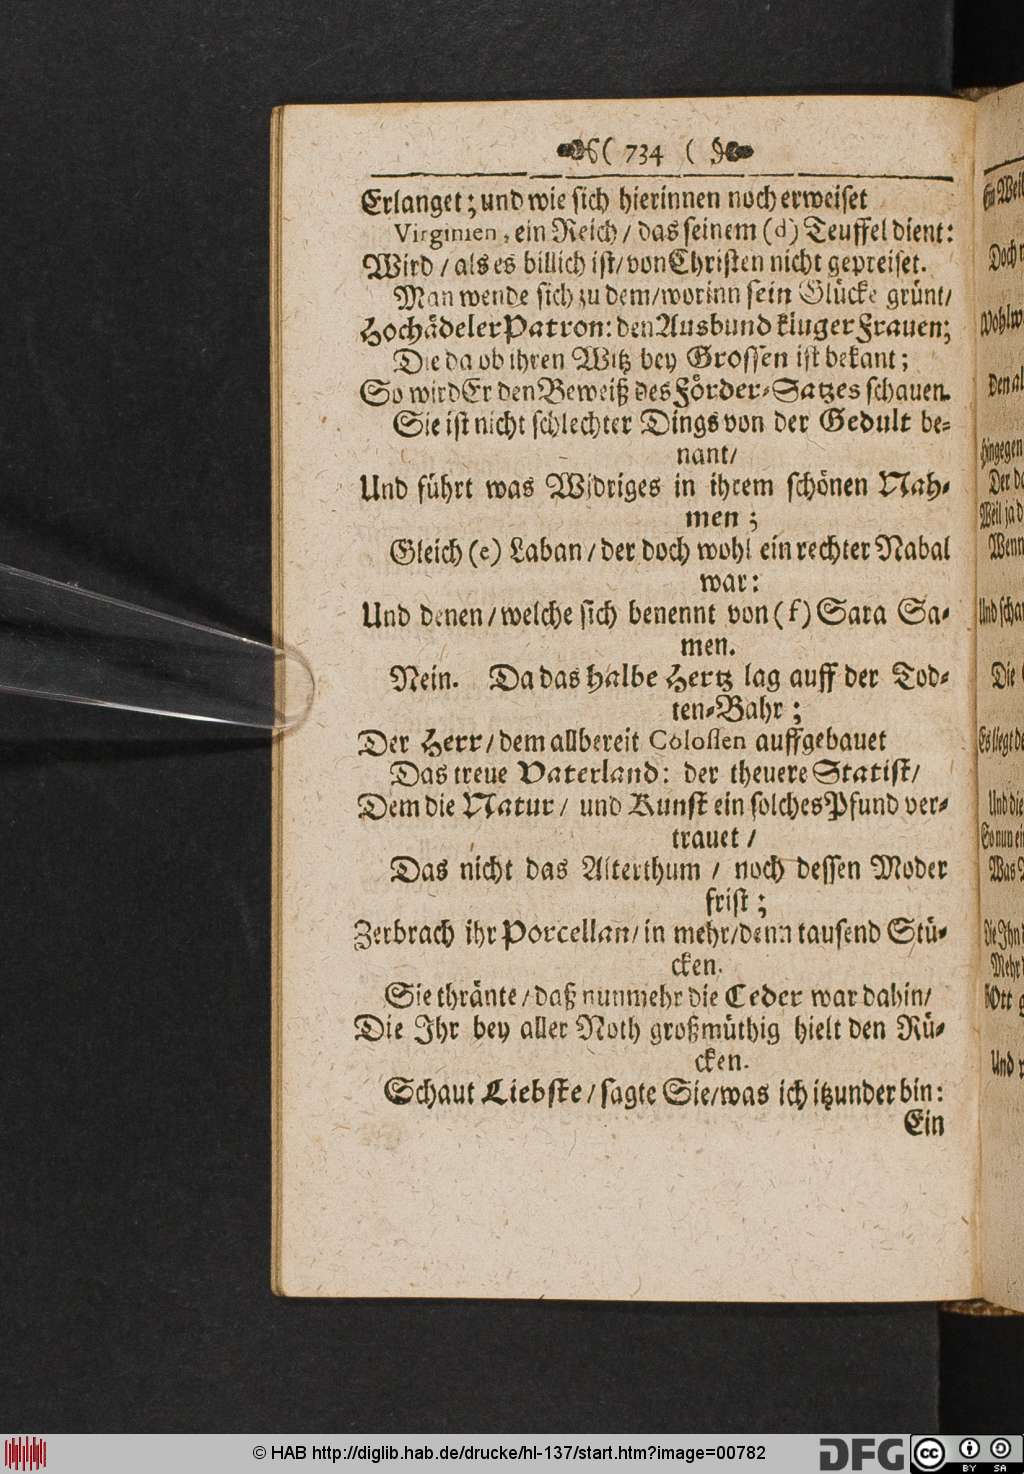 ( 734 (
Erlanget; und wie sich hierinnen noch erweiset
Virginien, ein Reich / das seinem (d) Teuffel dient:
Wird / als es billich ist / von Christen nicht gepreiset.
Man wende sich zu dem / worinn sein Glücke grünt /
Hochädeler Patron: den Ausbund kluger Frauen;
Die da ob ihren Witz bey Grossen ist bekant;
So wird Er den Beweiß des Förder-Satzes schauen.
Sie ist nicht schlechter Dings von der Gedult be-
nant /
Und führt was Widriges in ihrem schönen Nah-
men;
Gleich (e) Laban / der doch wohl ein rechter Nabal
war:
Und denen / welche sich benennt von (f) Sara Sa-
men.
Nein. Da das halbe Hertz lag auff der Tod-
ten-Bahr;
Der Herr / dem allbereit Colossen auffgebauet
Das treue Vaterland: der theuere Statist /
Dem die Natur / und Kunst ein solches Pfund ver-
trauet /
Das nicht das Alterthum / noch dessen Moder
frist;
Zerbrach ihr Porcellan / in mehr / denn tausend Stü-
cken.
Sie thränte / daß nunmehr die Ceder war dahin /
Die Ihr bey aller Noth großmüthig hielt den Rü-
cken.
Schaut Liebste / sagte Sie / was ich itzunder bin:
Ein
© HAB http://diglib.hab.de/drucke/hl-137/start.htm?image=00782
DFG
cc
BY SA